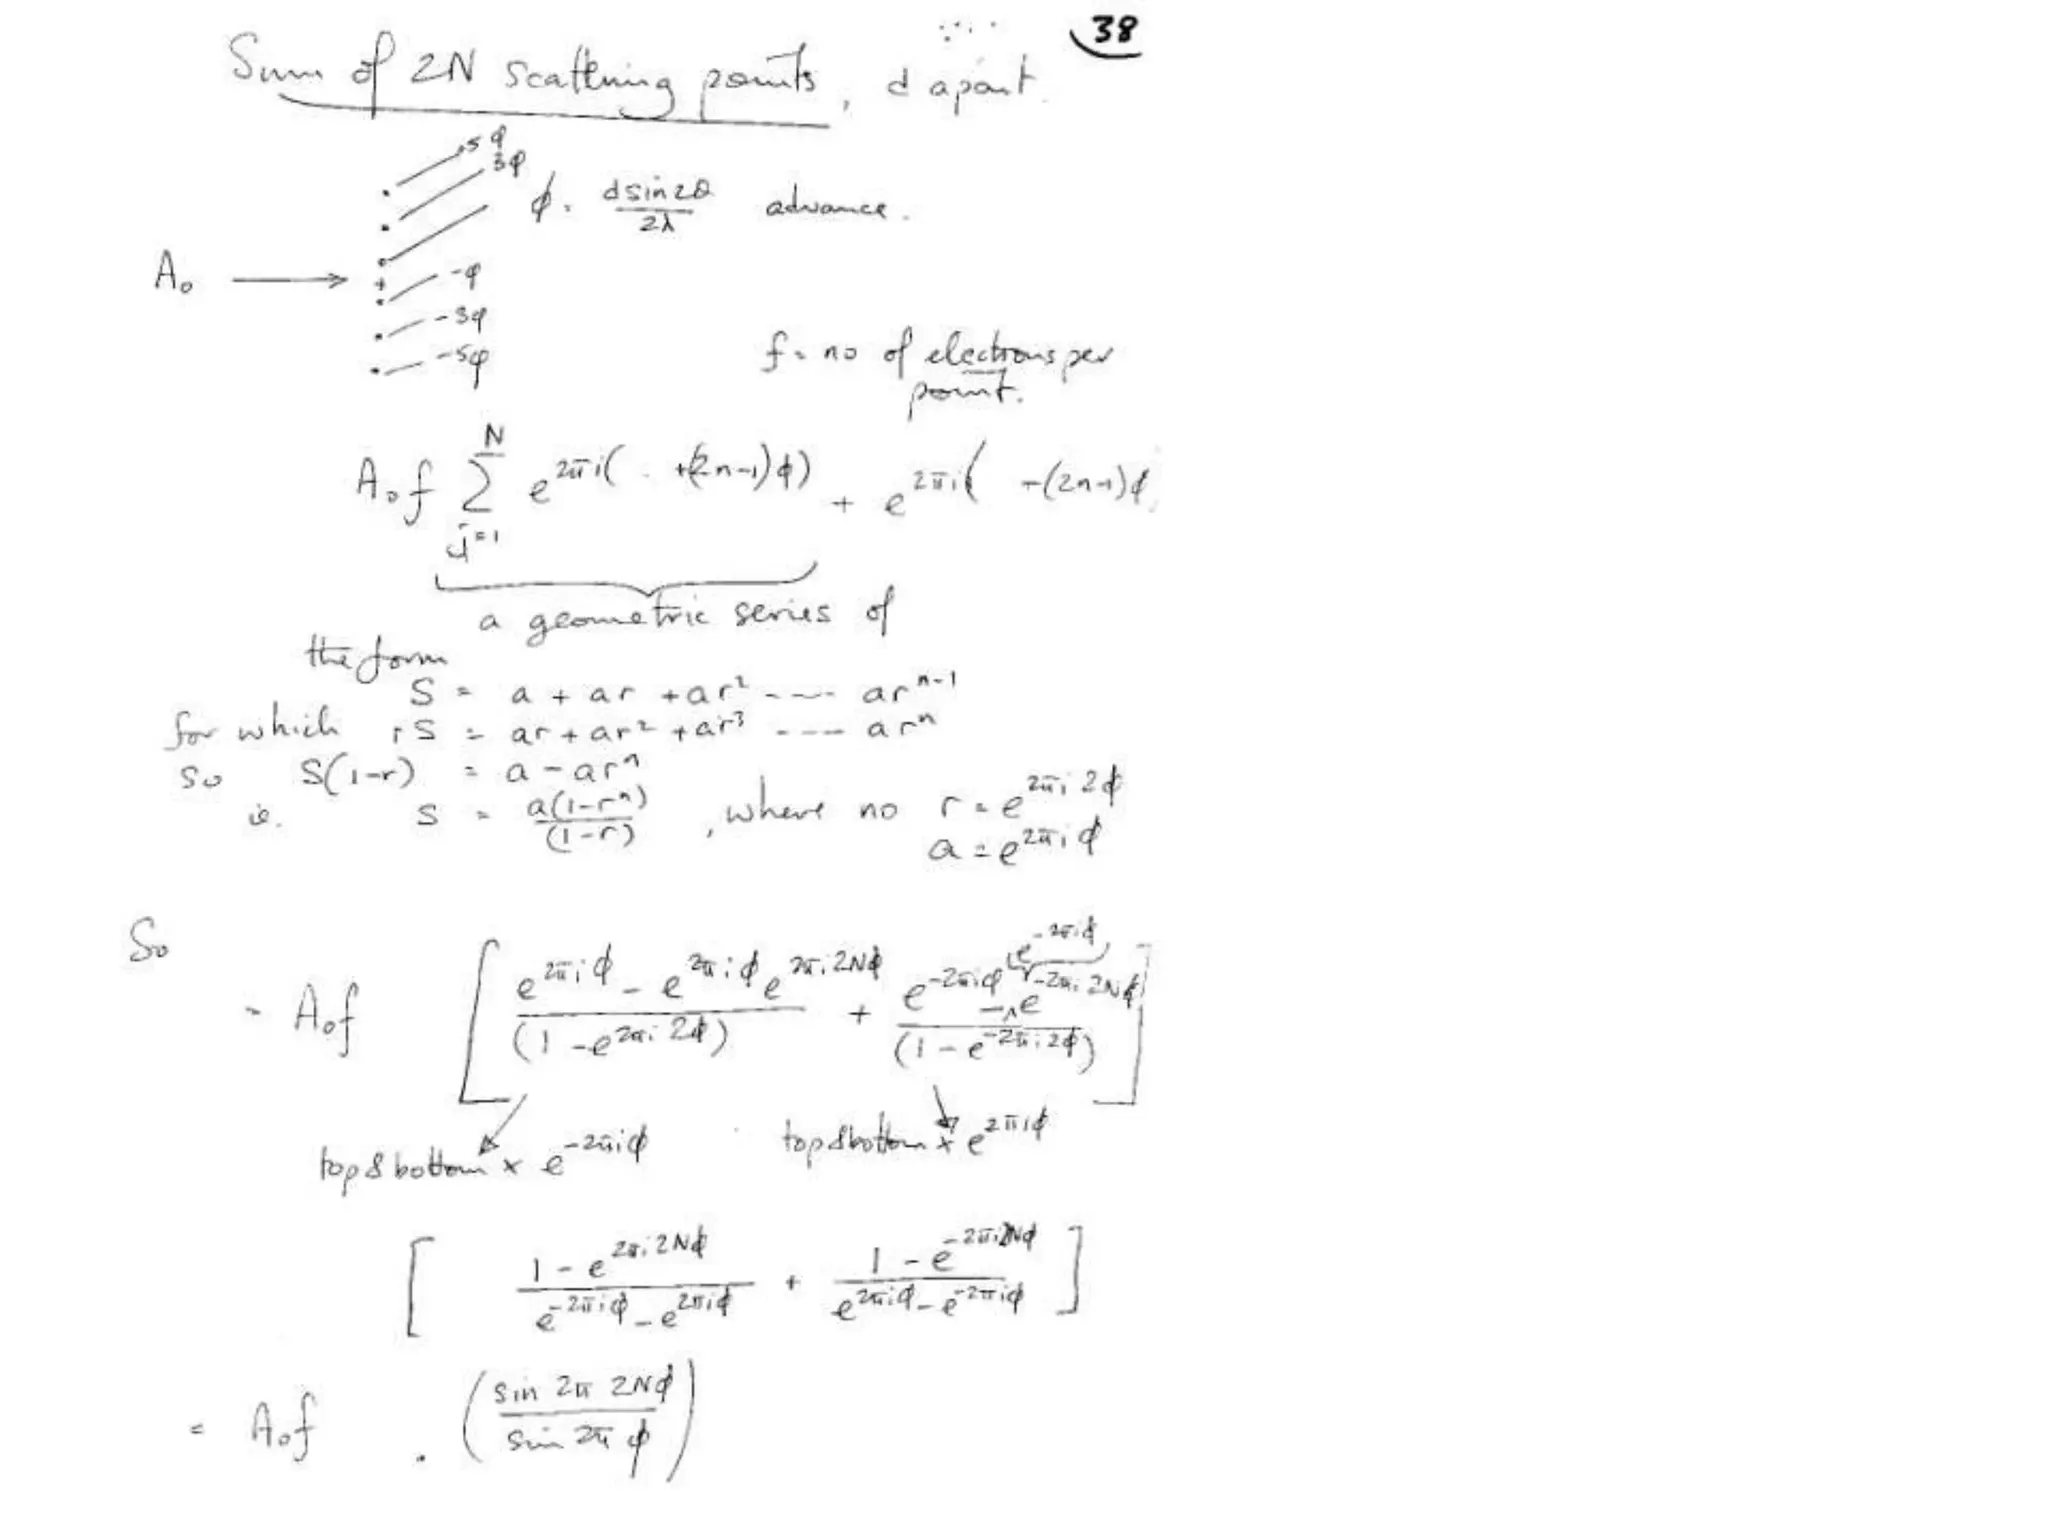 38
Sum of 2N scattering points, d apart.
+5φ
3φ
ϕ = dsin2θ / 2λ advance.
A₀ ⟶
-φ
-3φ
-5φ
f = no of electrons per
point.
A₀f ∑_{j=1}^{N} e^{2πi( +(2n-1)ϕ)} + e^{2πi( -(2n-1)ϕ
a geometric series of
the form
S = a + ar + ar² ---- ar^{n-1}
for which rS = ar + ar² + ar³ ---- ar^n
so S(1-r) = a - ar^n
ie. S = a(1-r^n) / (1-r) , where no r = e^{2πi 2ϕ}
a = e^{2πiϕ}
So
= A₀f [ (e^{2πiϕ} - e^{2πiϕ} e^{2πi2Nϕ}) / (1 - e^{2πi2ϕ}) + (e^{-2πiϕ} - e^{-2πiϕ} e^{-2πi2Nϕ}) / (1 - e^{-2πi2ϕ}) ]
top & bottom × e^{-2πiϕ} top & bottom × e^{2πiϕ}
[ (1 - e^{2πi2Nϕ}) / (e^{-2πiϕ} - e^{2πiϕ}) + (1 - e^{-2πi2Nϕ}) / (e^{2πiϕ} - e^{-2πiϕ}) ]
= A₀f . ( sin 2π 2Nϕ / sin 2π ϕ )